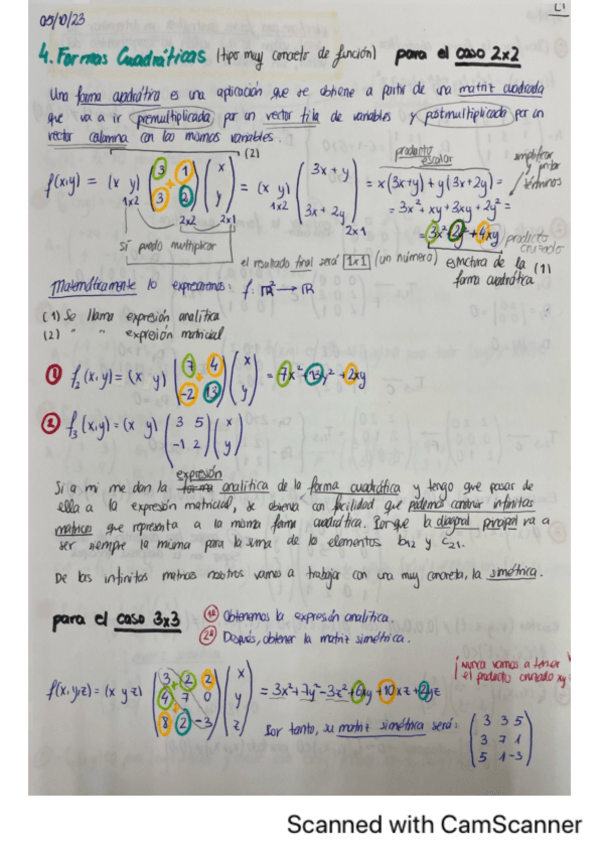 05/10/23
4. Formas Cuadráticas (tipo muy concreto de función) para el caso 2x2
Una forma cuadrática es una aplicación que se obtiene a partir de una matriz cuadrada
que va a ir premultiplicada por un vector fila de variables y postmultiplicado por un
vector columna con las mismas variables.
(2)
producto escalar
simplificar y juntar términos
f(x,y) = (x y) (3 1 / 3 2) (x / y) = (x y) (3x+y / 3x+2y) = x(3x+y) + y(3x+2y) =
1x2 2x2 2x1 1x2 2x1
= 3x² + xy + 3xy + 2y² =
= 3x² 2y² + 4xy producto cruzado
sí puedo multiplicar
el resultado final será 1x1 (un número) estructura de la forma cuadrática (1)
Matemáticamente lo expresaremos: f: ℝ² → ℝ
(1) Se llama expresión analítica
(2) " " expresión matricial
1 f₂(x,y) = (x y) (7 4 / -2 13) (x / y) = 7x² + 13y² + 2xy
2 f₃(x,y) = (x y) (3 5 / -1 2) (x / y)
expresión
Si a mi me dan la forma analítica de la forma cuadrática y tengo que pasar de
ella a la expresión matricial, se observa con facilidad que podemos construir infinitas
matrices que representa a la misma forma cuadrática. Porque la diagonal principal va a
ser siempre la misma para la suma de los elementos b₁₂ y c₂₁.
De las infinitas matrices nosotros vamos a trabajar con una muy concreta, la simétrica.
para el caso 3x3
1º Obtenemos la expresión analítica.
2º Después, obtener la matriz simétrica.
¡Nunca vamos a tener
el producto cruzado xy
f(x,y,z) = (x y z) (3 2 2 / 4 7 0 / 8 2 -3) (x / y / z) = 3x² + 7y² - 3z² + 6xy + 10xz + 2yz
Por tanto, su matriz simétrica será: (3 3 5 / 3 7 1 / 5 1 -3)
Scanned with CamScanner